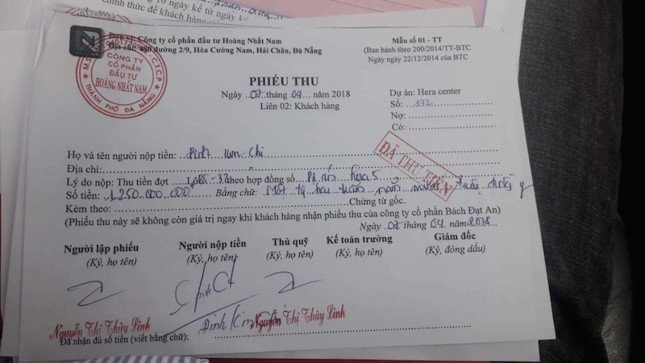 Đơn vị: Công ty cổ phần đầu tư Hoàng Nhất Nam
Địa chỉ: đường 2/9, Hòa Cường Nam, Hải Châu, Đà Nẵng
Mẫu số 01 - TT
(Ban hành theo 200/2014/TT-BTC
Ngày 22/12/2014 của BTC)
CÔNG TY
CỔ PHẦN
ĐẦU TƯ
HOÀNG NHẤT NAM
THÀNH PHỐ ĐÀ NẴNG
PHIẾU THU
Ngày tháng năm 2018
Liên 02: Khách hàng
Dự án: Hera center
Số:
Nợ:
Có:
ĐÃ THU TIỀN
Họ và tên người nộp tiền: Đinh Kim Chi
Địa chỉ:
Lý do nộp: Thu tiền đợt theo hợp đồng số
Số tiền: 1.250.000.000 Bằng chữ: Một tỷ hai trăm năm mươi triệu đồng
Kèm theo: Chứng từ gốc.
(Phiếu thu này sẽ không còn giá trị ngay khi khách hàng nhận phiếu thu của công ty cổ phần Bách Đạt An)
Ngày tháng năm 2018
Người lập phiếu Người nộp tiền Thủ quỹ Kế toán trưởng Giám đốc
(Ký, họ tên) (Ký, họ tên) (Ký, họ tên) (Ký, họ tên) (Ký, đóng dấu)
Nguyễn Thị Thùy Linh Đinh Kim Nguyễn Thị Thùy Linh
Đã nhận đủ số tiền (viết bằng chữ):